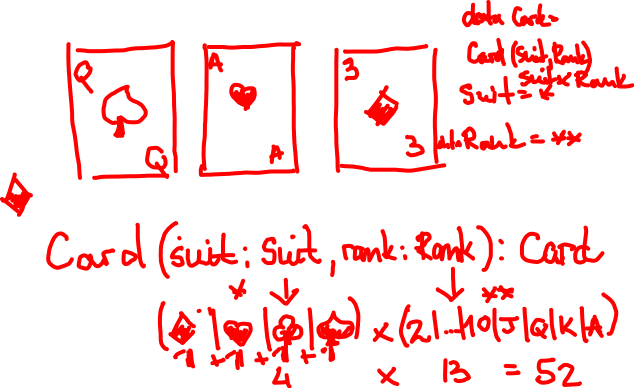 data Card =
Card (Suit, Rank)
Suit x Rank
Suit = *
data Rank = **
Q
Q
A
A
3
3
Card (suit: Suit, rank: Rank): Card
* **
(♦|♥|♣|♠) x (2|...|10|J|Q|K|A)
1 + 1 + 1 + 1
4 x 13 = 52